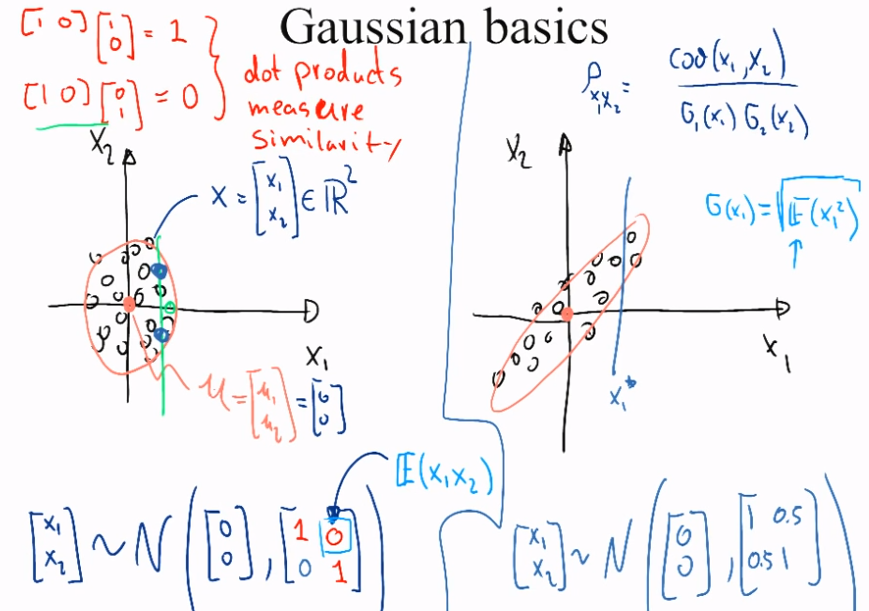 Gaussian basics
[1 0] [1 0] = 1
[1 0] [0 1] = 0
dot products
measure
similarity
X₂
X = [x₁ x₂] ∈ ℝ²
X₁
μ = [μ₁ μ₂] = [0 0]
𝔼(x₁x₂)
[x₁ x₂] ~ N ([0 0], [1 0 0 1])
ρx₁x₂ = cov(x₁, x₂) / σ₁(x₁) σ₂(x₂)
σ(x₁) = √𝔼(x₁²)
X₂
X₁
x₁*
[x₁ x₂] ~ N ([0 0], [1 0.5 0.5 1])